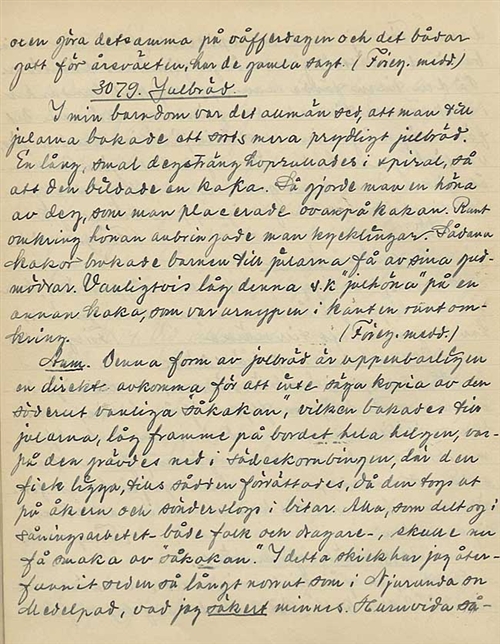 ocen göra detsamma på våfferdagen och det bådar
gott för årsväxten, har de gamla sagt. (Föreg. medd.)
3079. Julbröd.
I min barndom var det allmän sed, att man till
jularna bakade ett sorts mera prydligt julbröd.
En lång, smal degsträng hoprullades i spiral, så
att den bildade en kaka. Så gjorde man en höna
av deg, som man placerade ovanpå kakan. Runt
omkring hönan anbringade man kycklingar. Sådana
kakor brukade barnen till jularna få av sina gud-
mödrar. Vanligtvis låg denna s.k "julhöna" på en
annan kaka, som var urnypen i kanten runt om-
kring. (Föreg. medd.)
Anm. Denna form av julbröd är uppenbarligen
en direkte avkomma för att inte säga kopia av den
söderut vanliga "såkakan", vilken bakades till
jularna, låg framme på bordet hela helgen, var-
på den grävdes ned i sädeskornbingen, där den
fick ligga, tills sådden förrättades, då den togs ut
på åkern och sönderslogs i bitar. Alla, som deltog i
såningsarbetet - både folk och dragare -, skulle nu
få smaka av "såkakan". I detta skick har jag åter-
funnit seden så långt norrut som i Njurunda sn
Medelpad, vad jag säkert minnes. Huruvida så-